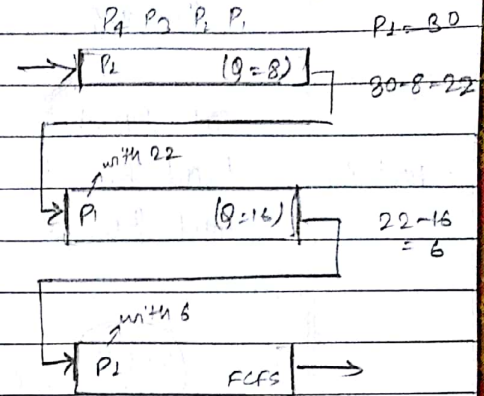 P4 P3 P2 P1
P1 = 30
P1 (Q = 8)
30-8=22
with 22
P1 (Q=16)
22-16
= 6
with 6
P1 FCFS